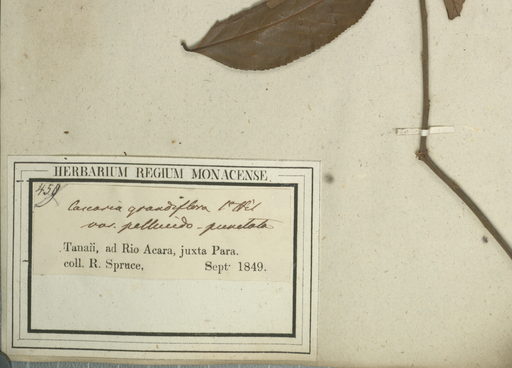 HERBARIUM REGIUM MONACENSE.
459
Casearia grandiflora
var. pellucido-punctata
Tanaü, ad Rio Acara, juxta Para.
coll. R. Spruce, Sept. 1849.